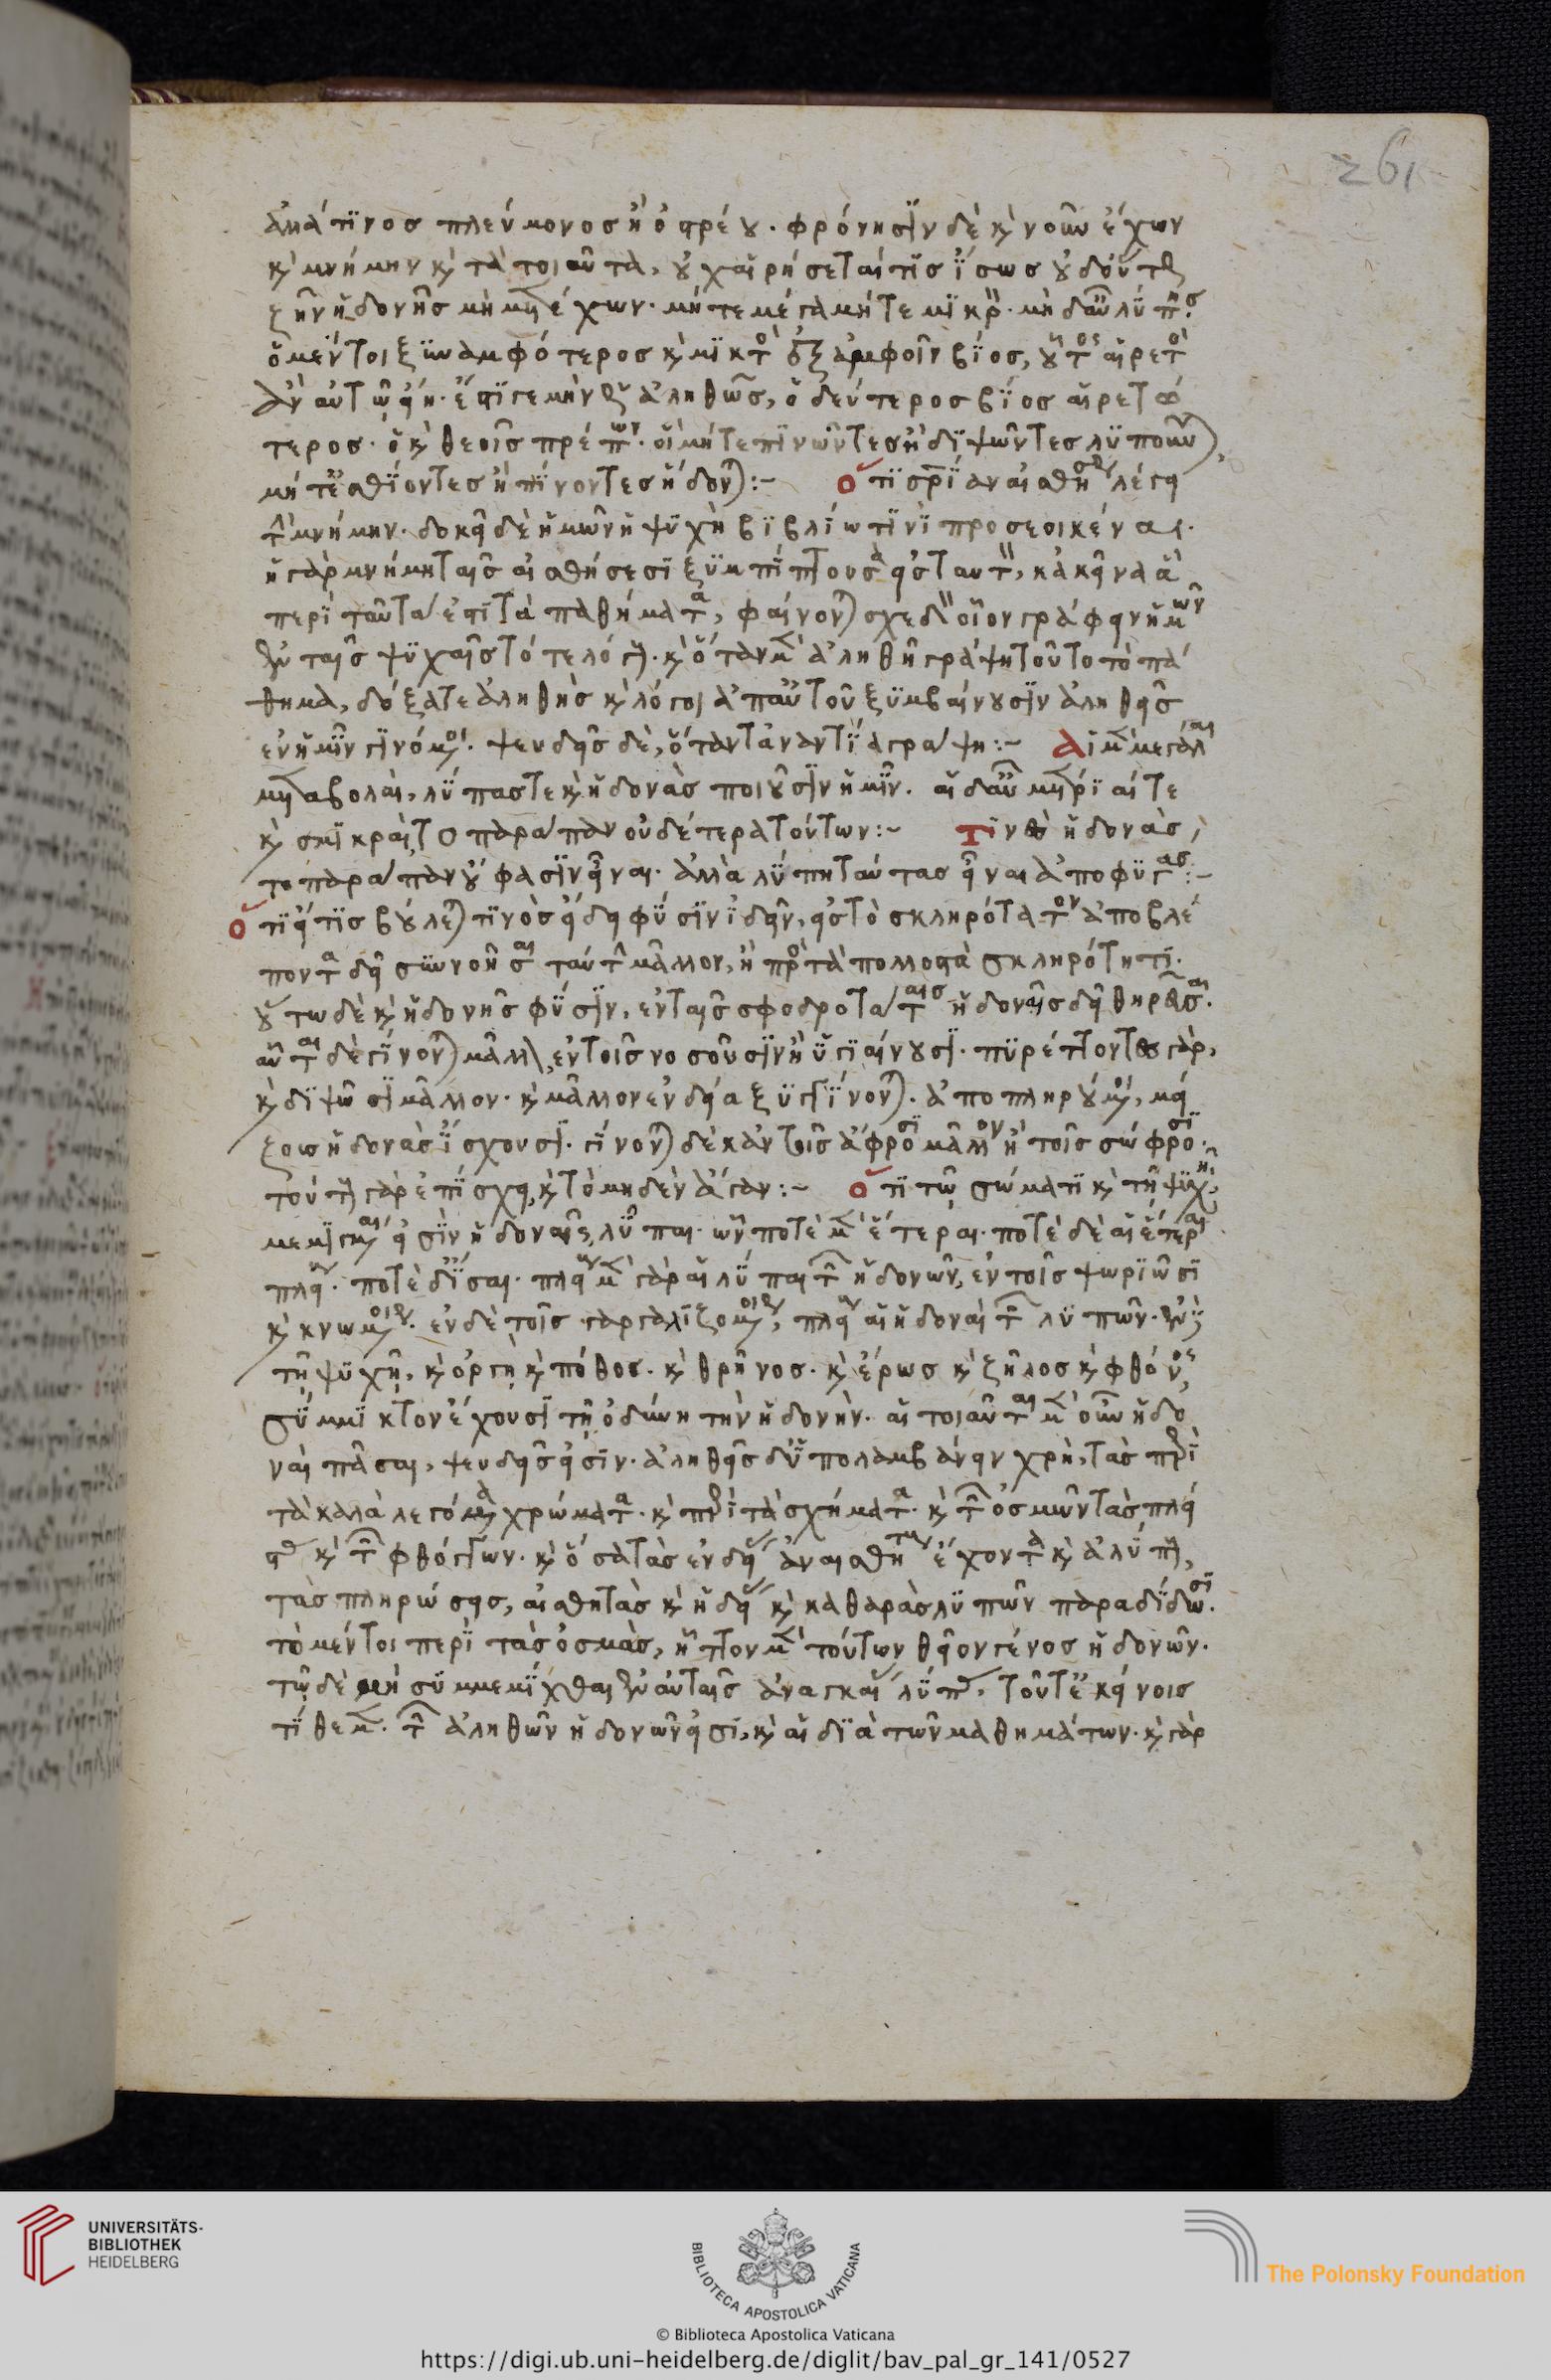 261
ἀλλά τινοσ πλεύμονοσ ἢ ὀστρέου. φρόνησιν δὲ κ̀ νοῦν ἔχων
κ̀ μνήμην κ̀ τὰ τοιαῦτα, οὐ χαιρήσεται τὶσ ἴσωσ οὐδ' οὗτος
ζῆν ἡδονῆσ μὴ μετέχων. μήτε μέγα μήτε μικρ. μὴ δ' αὖ λύπησ.
ὁ μέντοι ξυναμφότεροσ κ̀ μικτὸς ἐξ ἀμφοῖν βίοσ, οὗτος αἱρετὸς
ἂν αὐτῷ εἴη. ἐπί γε μὴν ἀληθῶσ, ὁ δεύτεροσ βίοσ αἱρετώ
τεροσ. ὁ κ̀ θεοῖσ πρέπων. οἳ μήτε πινῶντεσ ἢ διψῶντεσ λυποῦνται,
μήτε ἐσθίοντεσ ἢ πίνοντεσ ἥδονται:- Ὅτι σωτηρίαν αἰσθήσεως λέγει
τὴν μνήμην. δοκεῖ δὲ ἡμῶν ἡ ψυχὴ βιβλίω τινὶ προσεοικέναι.
ἡ γὰρ μνήμη ταῖσ αἰσθήσεσι ξυμπίπτουσα εἰσ ταυτὸν, κἀκεῖνα ἃ
περὶ ταῦτα ἐστὶ τὰ παθήματα, φαίνονται σχεδὸν οἷον γράφειν ἡμῶν
ἐν ταῖσ ψυχαῖσ τότε λόγους. κ̀ ὅταν μὲν ἀληθῆ γράψη τοῦτο τὸ πά
θημα, δόξα τε ἀληθὴσ κ̀ λόγοι ἀπ' αὐτοῦ ξυμβαίνουσιν ἀληθεῖσ
ἐν ἡμῖν γινόμενοι. ψευδεῖσ δὲ, ὅταν τἀναντία γράψη:- Αἱ μὲν μεγάλαι
μεταβολαὶ, λύπασ τε κ̀ ἡδονὰσ ποιοῦσιν ἡμῖν. αἱ δ' αὖ μέτριαί τε
κ̀ σμικραὶ, τοπαράπαν οὐδέτερα τούτων:- Τινὲσ ἡδονὰσ,
τοπαράπαν οὔ φασιν εἶναι. ἀλλὰ λύπησ ταύτασ εἶναι ἀποφυγάσ:-
Ὅτι εἴ τισ βούλεται τινὸσ εἴδει φύσιν ἰδεῖν, εἰσ τὸ σκληρότατον ἀποβλέ
ποντα δεῖ συννοῆσαι ταύτην μᾶλλον, ἢ πρὸσ τὰ πολλοστὰ σκληρότητι.
οὕτω δὲ κ̀ ἡδονῆσ φύσιν, ἐν ταῖσ σφοδροτάταισ ἡδοναῖσ δεῖ θηρᾶσαι.
αὗται δὲ γίνονται μᾶλλον, ἐν τοῖσ νοσοῦσιν ἢ ὑγιαίνουσι. πυρέττοντεσ γὰρ,
κ̀ διψῶσι μᾶλλον. κ̀ μᾶλλον ἐνδεία ξυγγίνονται. ἀποπληρούμενοι, μεί
ζουσ ἡδονὰσ ἴσχουσι. γίνονται δὲ κἀν τοῖσ ἄφροσι μᾶλλον ἢ τοῖσ σώφροσι.
τούτους γὰρ ἐπίσχει κ̀ τὸ μηδὲν ἄγαν:- Ὅτι τῷ σώματι κ̀ τῇ ψυχῇ,
μεμιγμέναι εἰσὶν ἡδοναῖσ λῦπαι. ὧν ποτὲ μὲν ἕτεραι. ποτὲ δὲ αἱ ἕτεραι
πλείους. ποτὲ δ' ἴσαι. πλείους μὲν γὰρ αἱ λῦπαι τῶν ἡδονῶν, ἐν τοῖσ ψωριῶσι
κ̀ κνωμένοις. ἐν δὲ τοῖσ γαργαλιζομένοις, πλείους αἱ ἡδοναὶ τῶν λυπῶν. ἐν δὲ
τῇ ψυχῇ, κ̀ ὀργὴ κ̀ πόθοσ. κ̀ θρῆνοσ. κ̀ ἔρωσ κ̀ ζῆλοσ κ̀ φθόνος
σύμμικτον ἔχουσι τῇ ὀδύνη τὴν ἡδονήν. αἱ τοιαῦται μὲν οὖν ἡδο
ναὶ πᾶσαι, ψευδεῖσ εἰσίν. ἀληθεῖσ δ' ὑπολαμβάνειν χρὴ, τὰσ περὶ
τὰ καλὰ λεγόμενα χρώματα. κ̀ περὶ τὰ σχήματα. κ̀ τῶν ὀσμῶν τὰσ πλεί
στας κ̀ τῶν φθόγγων. κ̀ ὅσα τὰσ ἐνδείας ἀναισθήτους ἔχοντα κ̀ ἀλύπους,
τὰσ πληρώσεισ, αἰσθητὰσ κ̀ ἡδείας κ̀ καθαρὰσ λυπῶν παραδίδωσι.
τὸ μέντοι περὶ τὰσ ὀσμὰσ, ἧττον μὲν τούτων θεῖον γένοσ ἡδονῶν.
τῷ δὲ μὴ συμμεμίχθαι ἐν αὐταῖσ ἀναγκαίας λύπας. τοῦτ' ἐκείνοισ
τίθεμεν. τῶν ἀληθῶν ἡδονῶν εἰσὶ, κ̀ αἱ διὰ τῶν μαθημάτων. κ̀ γὰρ
UNIVERSITÄTS-
BIBLIOTHEK
HEIDELBERG
BIBLIOTECA APOSTOLICA VATICANA
The Polonsky Foundation
© Biblioteca Apostolica Vaticana
https://digi.ub.uni-heidelberg.de/diglit/bav_pal_gr_141/0527